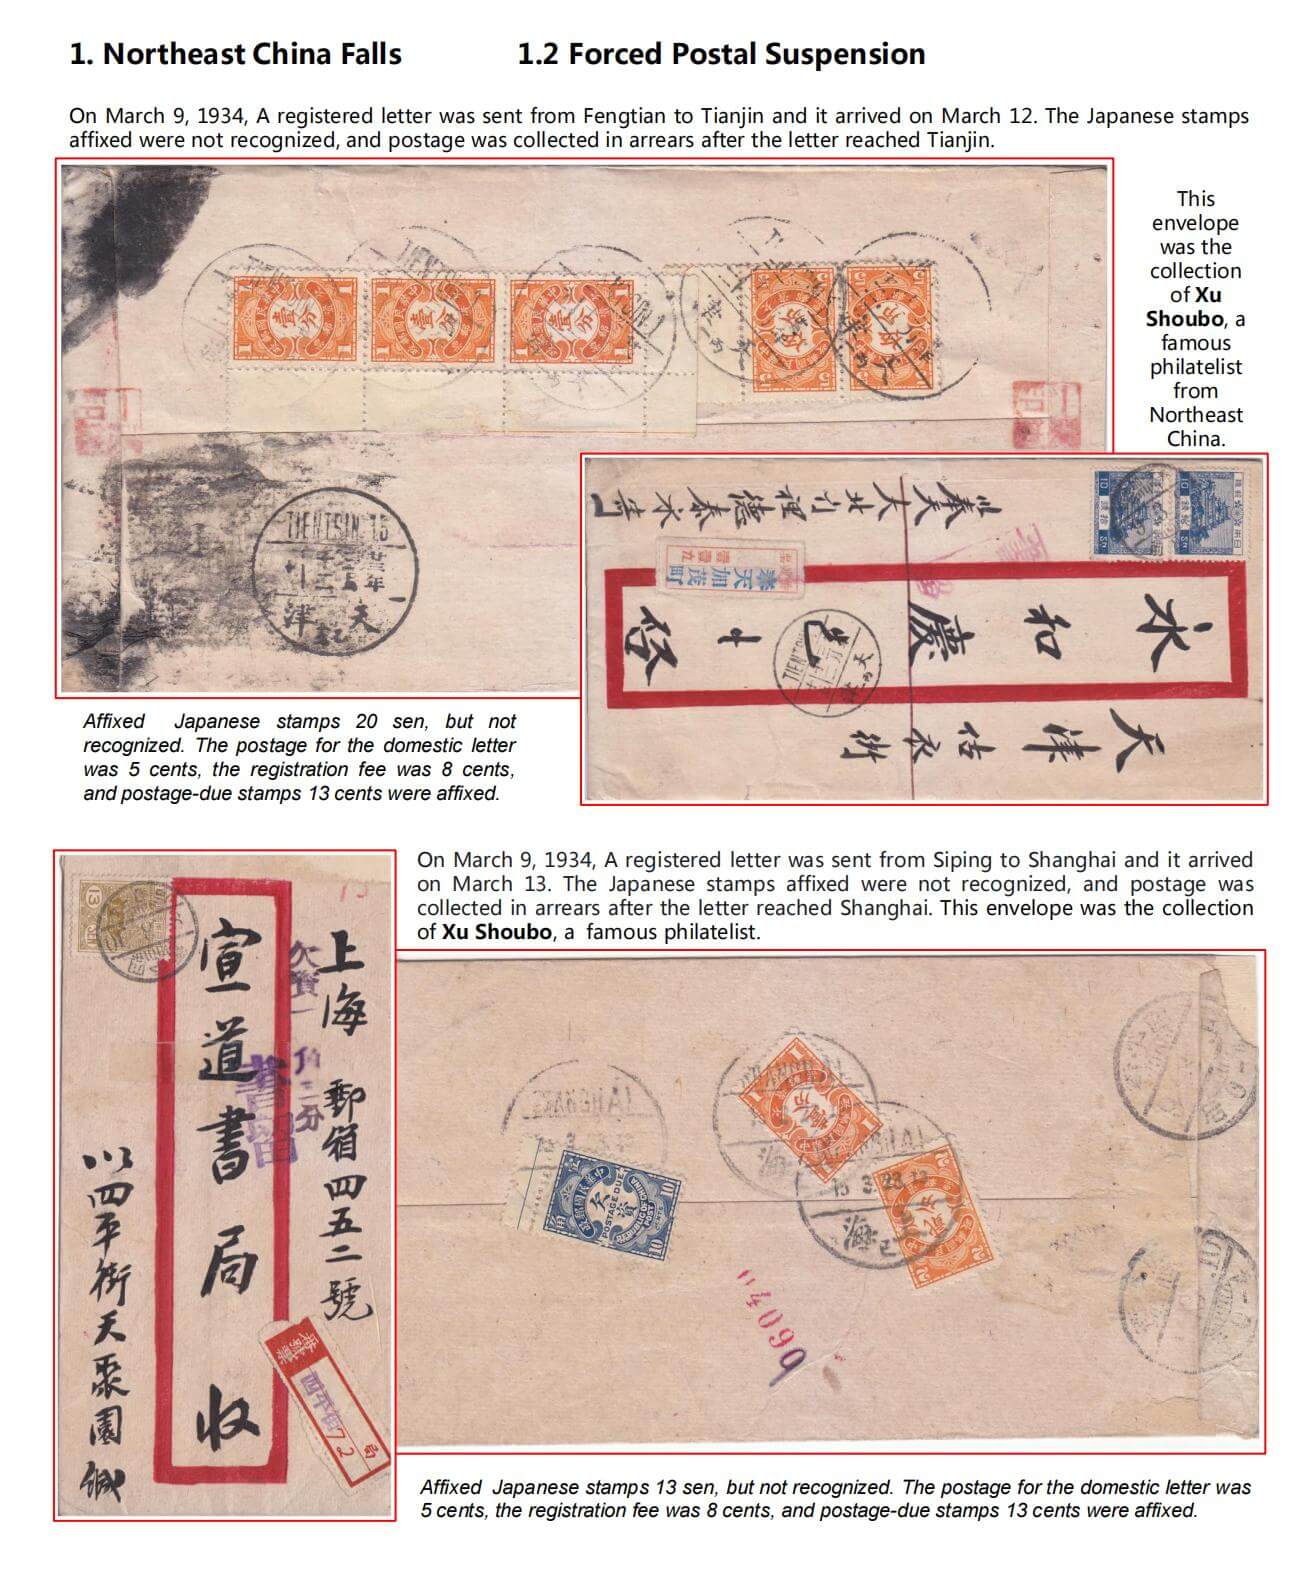 1. Northeast China Falls 1.2 Forced Postal Suspension
On March 9, 1934, A registered letter was sent from Fengtian to Tianjin and it arrived on March 12. The Japanese stamps
affixed were not recognized, and postage was collected in arrears after the letter reached Tianjin.
This
envelope
was the
collection
of Xu
Shoubo, a
famous
philatelist
from
Northeast
China.
1 壹分 1
1 壹分 1
1 壹分 1
5 伍分 5
5 伍分 5
TIENTSIN
TIENTSIN 15
廿三年
天津
奉天大北門裡德泰永寄
奉天加茂町
10 Sn
10 Sn
永和慶
啓
天津估衣街
Affixed Japanese stamps 20 sen, but not
recognized. The postage for the domestic letter
was 5 cents, the registration fee was 8 cents,
and postage-due stamps 13 cents were affixed.
On March 9, 1934, A registered letter was sent from Siping to Shanghai and it arrived
on March 13. The Japanese stamps affixed were not recognized, and postage was
collected in arrears after the letter reached Shanghai. This envelope was the collection
of Xu Shoubo, a famous philatelist.
13 SEN
上海郵箱四五二號
欠資一角三分
書留
宣道書局收
四平街天聚園緘
四平街 72
局
1 壹分 1
2 貳分 2
10 欠資 10
POSTAGE DUE
REPUBLIC OF CHINA
CENTS
13 3.23.13
Affixed Japanese stamps 13 sen, but not recognized. The postage for the domestic letter was
5 cents, the registration fee was 8 cents, and postage-due stamps 13 cents were affixed.